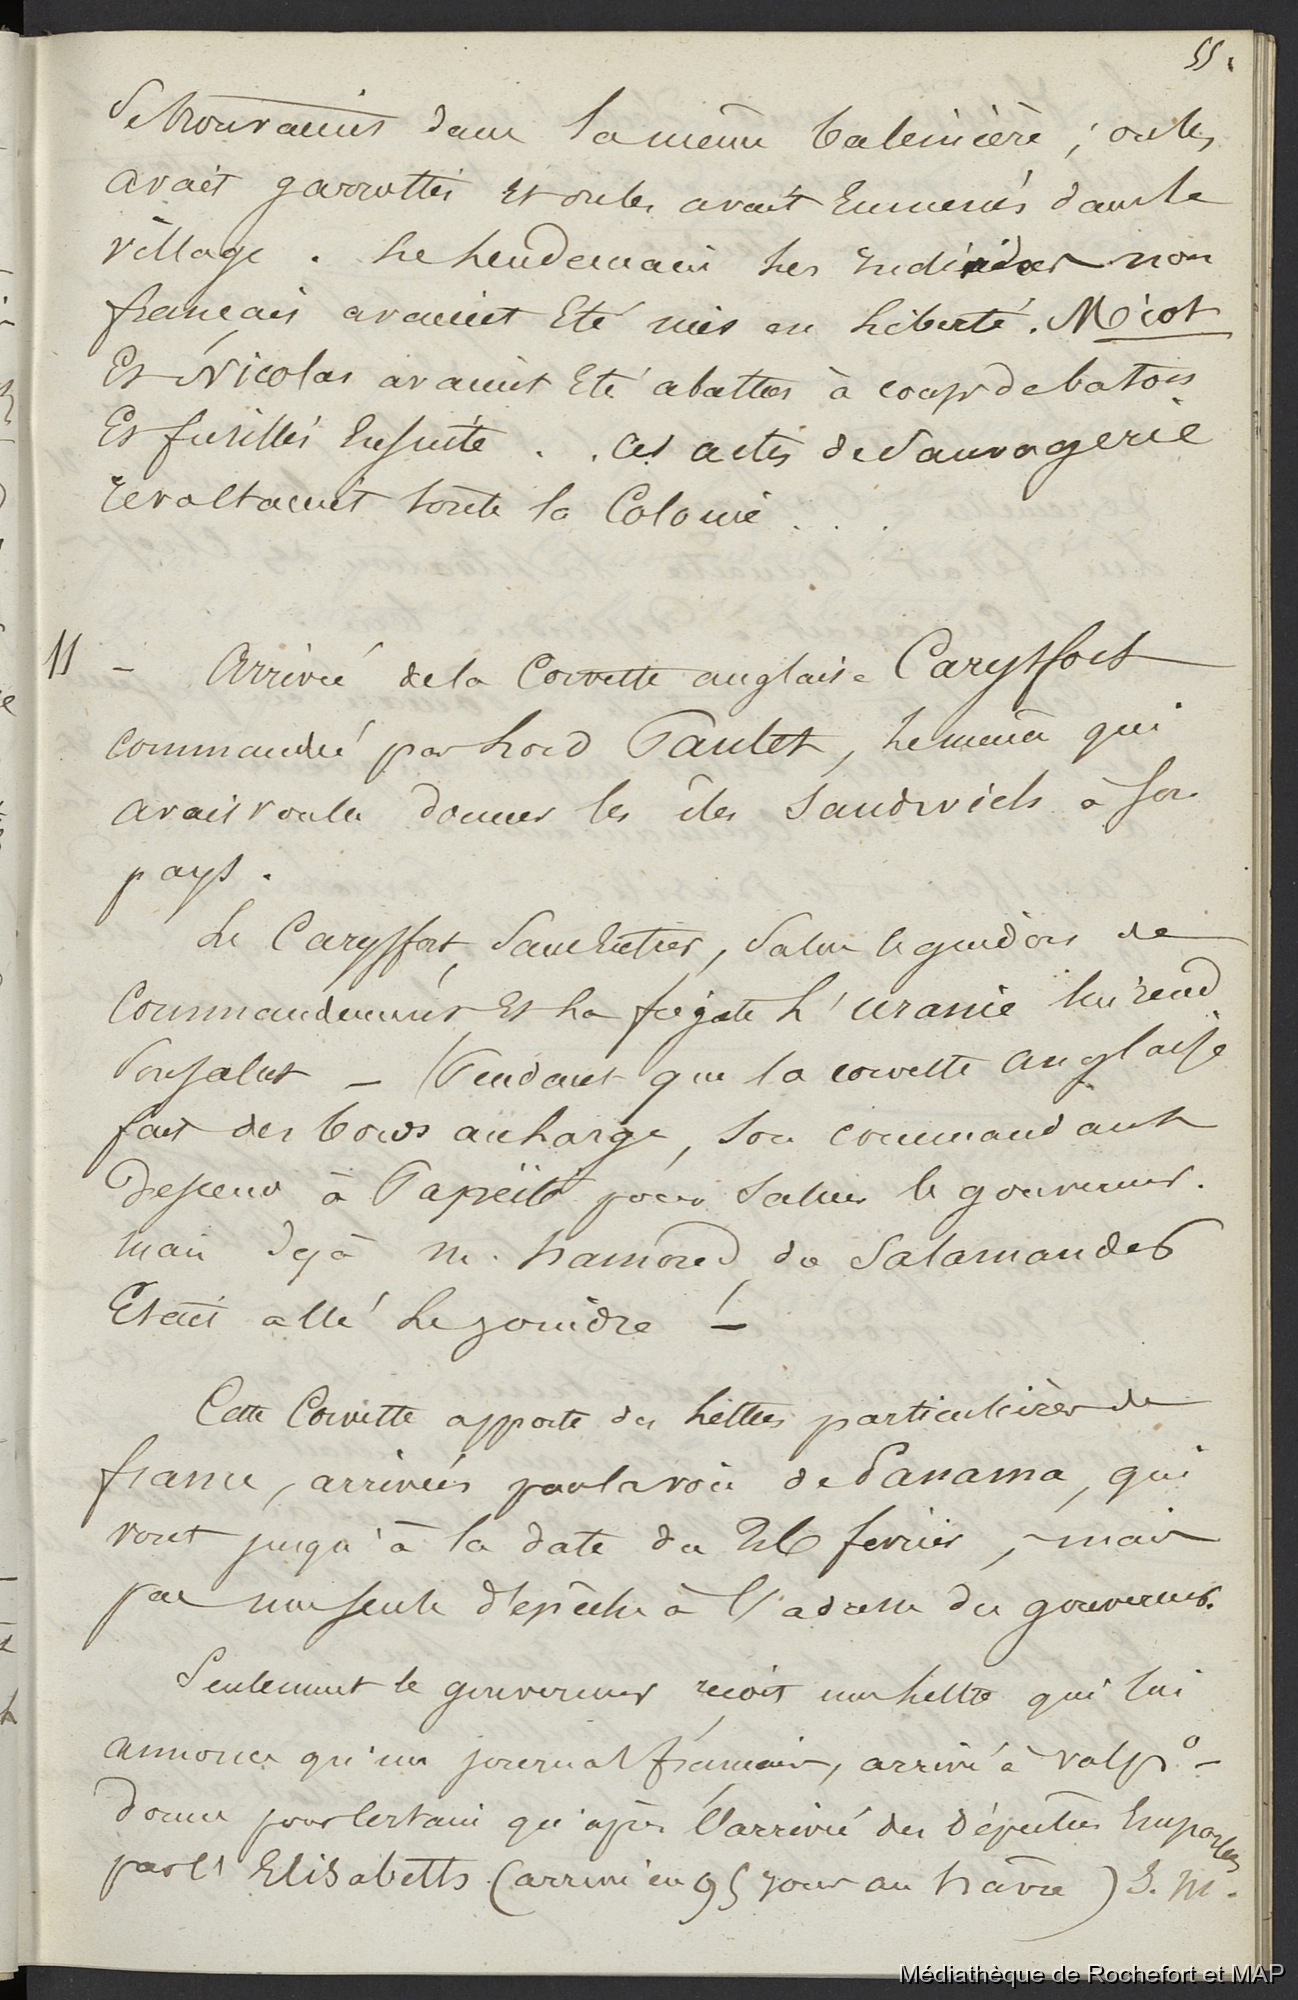 55.
Se trouvaient dans la même baleinière ; on les
avait garrottés et on les avait emmenés dans le
village . Le lendemain les individus non
français avaient été mis en liberté. Micot
Et Nicolas avaient été abattus à coups de batons
Et fusillés ensuite . . Ces actes de Sauvagerie
revoltaient toute la Colonie . . .
11 – Arrivée de la Corvette anglaise Carysfort
commandée par Lord Paulet, le même qui
avait voulu donner les îles Sandwich à son
pays .
Le Carysfort, Sans Entrer, Salue le guidon de
Commandement Et la frégate L'Uranie lui rend
Son salut – Pendant que la corvette anglaise
fait des bords au large, son commandant
Descend à Papeïti pour saluer le gouverneur.
Mais déjà M. hamond du Salamander
Etait allé le joindre ! –
Cette Corvette apporte des lettres particulières de
france, arrivées par la voie de Panama, qui
vont jusqu'à la date du 26 fevrier, mais
pas une seule dépêche à l'adresse du gouverneur.
Seulement le gouverneur reçoit une lettre qui lui
annonce qu'un journal français, arrivé à Valpº –
donne pour certain qu'après l'arrivée des dépêches Emportées
par l' Elisabeth (arrivé en 95 jours au havre) S. M.
Médiathèque de Rochefort et MAP